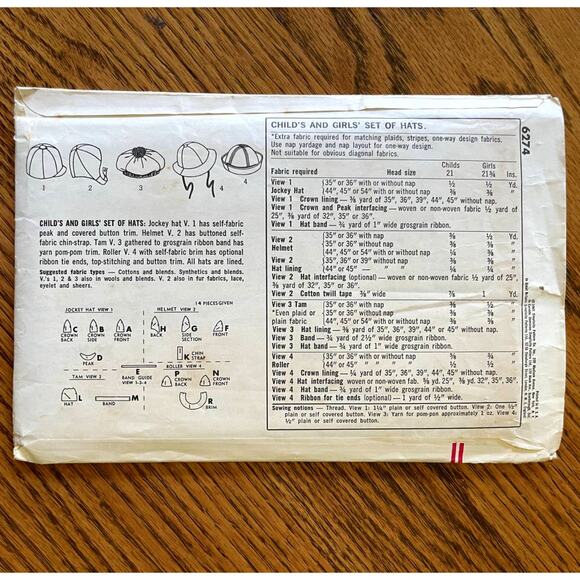 6274
CHILD'S AND GIRLS' SET OF HATS.
*Extra fabric required for matching plaids, stripes, one-way design fabrics.
Use nap yardage and nap layout for one-way design.
Not suitable for obvious diagonal fabrics.
Childs Girls
Fabric required Head size 21 21¾ Ins.
View 1 (35" or 36" with or without nap ½ ½ Yd.
Jockey Hat (44", 45" or 54" with or without nap ⅜ ⅜ "
View 1 Crown lining — ⅜ yard of 35", 36", 39", 44" or 45" without nap.
View 1 Crown and Peak interfacing — woven or non-woven fabric ½ yard of
25", ⅜ yard of 32", 35" or 36".
View 1 Hat band — ¾ yard of 1" wide grosgrain ribbon.
View 2 (35" or 36" with nap
Helmet (35" or 36" without nap
(44", 45" or 54" with or without nap
View 2 (35", 36" or 39" without nap
Hat lining (44" or 45" — " "
View 2 Hat interfacing (optional) — woven or non-woven fabric ½ yard of 25",
⅜ yard of 32", 35" or 36".
View 2 Cotton twill tape ⅜" wide ⅞ 1 Yd.
View 3 Tam (35" or 36" with nap
*Even plaid or (35" or 36" without nap
plain fabric (44", 45" or 54" with or without nap
View 3 Hat lining — ⅜ yard of 35", 36", 39", 44" or 45" without nap.
View 3 Band — ¾ yard of 2½" wide grosgrain ribbon.
View 3 Hat band — ¾ yard of 1" wide grosgrain ribbon.
View 4 (35" or 36" with or without nap
Roller (44", 45" or 54" with or without nap
View 4 Crown lining — ¼ yard of 35", 36", 39", 44", 45" without nap.
View 4 Hat interfacing woven or non-woven fab. ⅝ yd. 25", ⅜ yd. 32", 35", 36".
View 4 Hat band — ¾ yard of 1" wide grosgrain ribbon.
View 4 Ribbon for tie ends (optional) — 1 yard of ½" wide.
Sewing notions — Thread. View 1: 1¼" plain or self covered button. View 2: One ½"
plain or self covered button. View 3: Yarn for pom-pon approximately 1 oz. View 4:
½" plain or self covered button.
1 2 3 4 4
CHILD'S AND GIRLS' SET OF HATS: Jockey hat V. 1 has self-fabric
peak and covered button trim. Helmet V. 2 has buttoned self-
fabric chin-strap. Tam V. 3 gathered to grosgrain ribbon band has
yarn pom-pom trim. Roller V. 4 with self-fabric brim has optional
ribbon tie ends, top-stitching and button trim. All hats are lined.
Suggested fabric types - Cottons and blends. Synthetics and blends.
V.'s 1, 2 & 3 also in wools and blends. V. 2 also in fur fabrics, lace,
eyelet and sheers.
14 PIECES GIVEN
JOCKEY HAT VIEW 1
HELMET VIEW 2
C
CROWN
BACK
B
CROWN
SIDE
A
CROWN
FRONT
H
BACK
G
SIDE
SECTION
F
FRONT
D
PEAK
K CHIN
STRAP
ROLLER VIEW 4
TAM VIEW 3
E
BAND GUIDE
VIEW 1-3-4
P
CROWN
BACK
N
CROWN
FRONT
L
HAT
M
BAND
R
BRIM